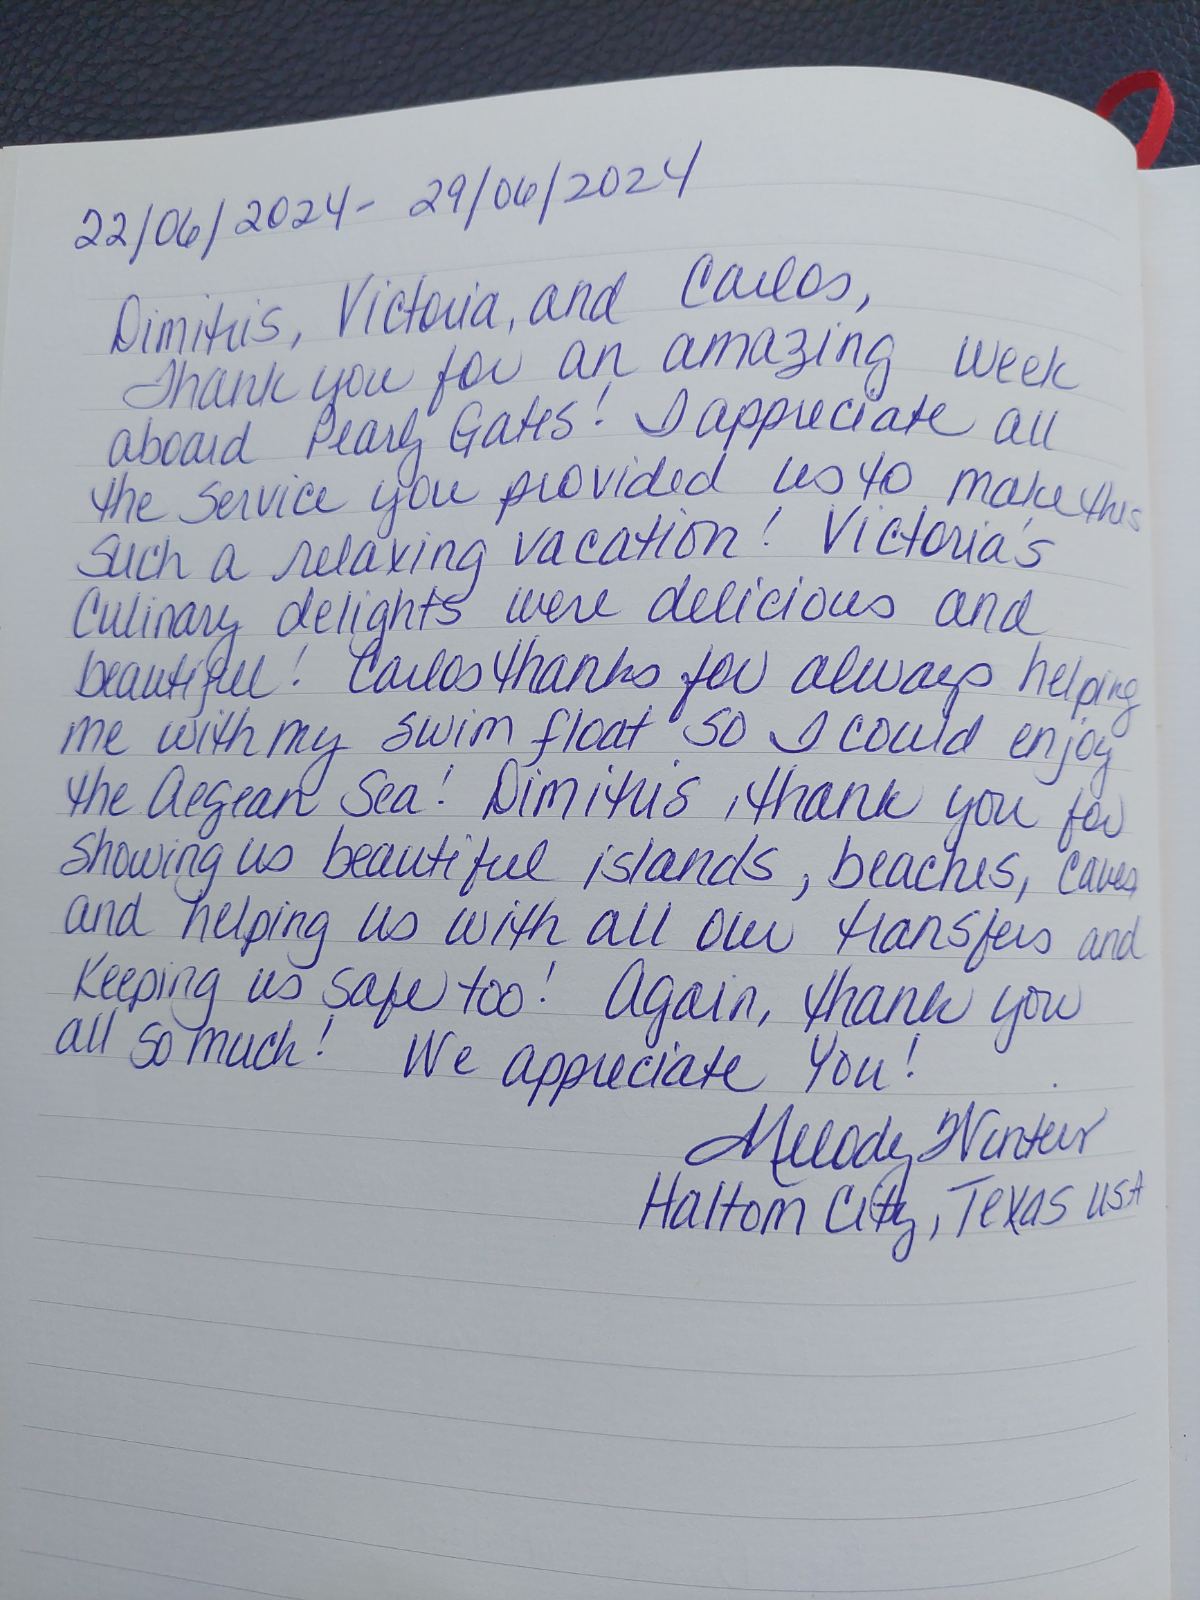 22/06/2024 - 29/06/2024
Dimitris, Victoria, and Carlos,
Thank you for an amazing week
aboard Pearly Gates! I appreciate all
the service you provided us to make this
such a relaxing vacation! Victoria's
culinary delights were delicious and
beautiful! Carlos thanks for always helping
me with my swim float so I could enjoy
the Aegean Sea! Dimitris, thank you for
showing us beautiful islands, beaches, caves
and helping us with all our transfers and
keeping us safe too! Again, thank you
all so much! We appreciate You!
Melody Winter
Haltom City, Texas USA